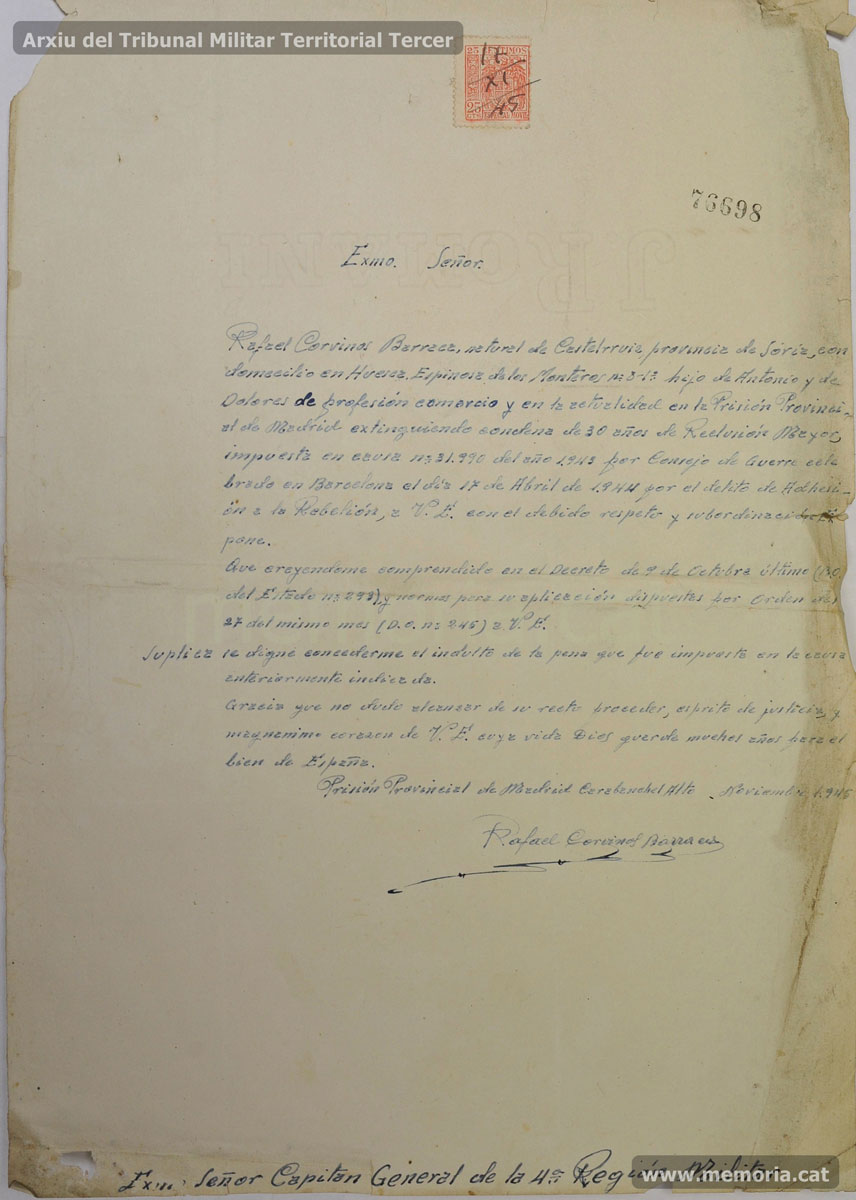 Arxiu del Tribunal Militar Territorial Tercer
25 CTIMOS
17
XI
45
25
CTS ESPECIAL MOVIL
76698
Exmo. Señor.
Rafael Corvinos Barraca, natural de Castelrruiz provincia de Sória, con
domicilio en Huesca. Espinosa de los Monteros nº 3-1º hijo de Antonio y de
Dolores de profesión comercio y en la actualidad en la Prisión Provinci-
al de Madrid extinguiendo condena de 30 años de Reclusión Mayor,
impuesta en causa nº 31.990 del año 1.943 por Consejo de Guerra cele
brado en Barcelona el día 17 de Abril de 1.944 por el delito de Adhesi-
ón a la Rebelión, a V.E. con el debido respeto y subordinación Ex
pone.
Que creyendome comprendido en el Decreto de 9 de Octubre último (B.O.
del Estado nº 293) y normas para su aplicación dispuestas por Orden del
27 del mismo mes (D.O. nº 245) a V.E.
Suplica se digne concederme el indulto de la pena que fue impuesta en la causa
anteriormente indicada.
Gracia que no dudo alcanzar de su recto proceder, esprito de justicia, y
magnanimo corazon de V.E. cuya vida Dios guarde muchos años para el
bien de España.
Prisión Provincial de Madrid Carabanchel Alto Noviembre 1.945
Rafael Corvinos Barraca
Exmº Señor Capitan General de la 4ª Región Militar
www.memoria.cat